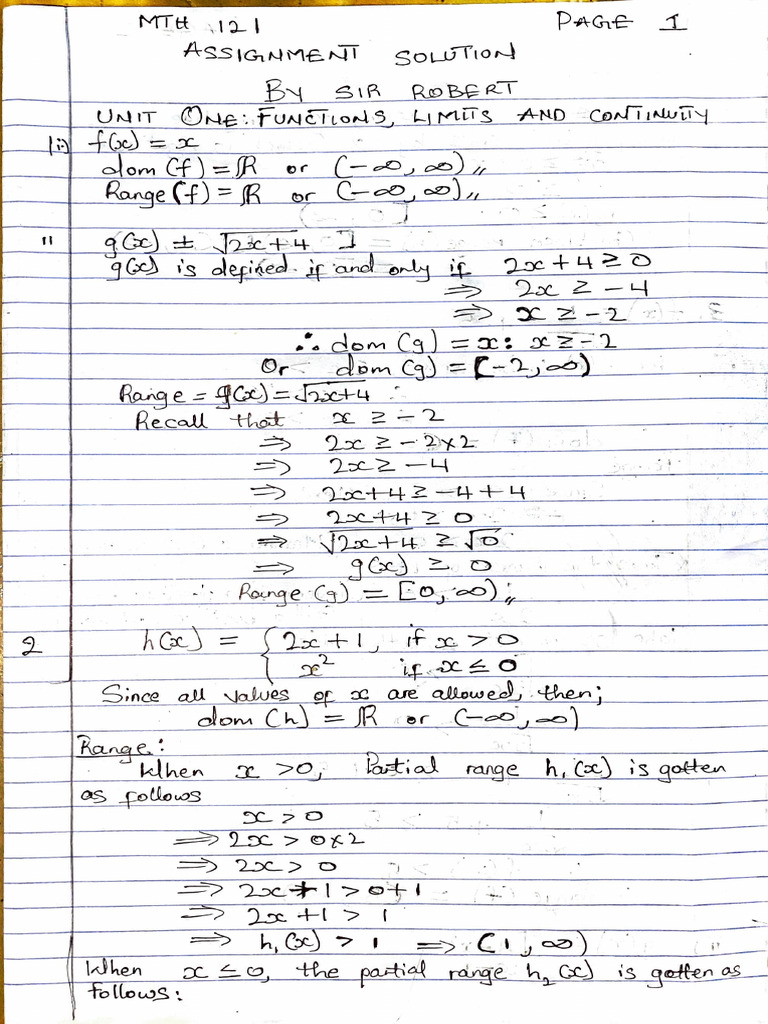 MTH 121 PAGE 1
ASSIGNMENT SOLUTION
BY SIR ROBERT
UNIT ONE: FUNCTIONS, LIMITS AND CONTINUITY
1i) f(x) = x
dom (f) = ℝ or (-∞, ∞),,
Range (f) = ℝ or (-∞, ∞),,
ii g(x) = √2x+4
g(x) is defined if and only if 2x + 4 ≥ 0
⇒ 2x ≥ -4
⇒ x ≥ -2
∴ dom (g) = x: x ≥ -2
Or dom (g) = [-2, ∞)
Range = g(x) = √2x+4
Recall that x ≥ -2
⇒ 2x ≥ -2×2
⇒ 2x ≥ -4
⇒ 2x+4 ≥ -4+4
⇒ 2x+4 ≥ 0
⇒ √2x+4 ≥ √0
⇒ g(x) ≥ 0
∴ Range (g) = [0, ∞),,
2 h(x) = { 2x+1, if x > 0
x² if x ≤ 0
Since all values of x are allowed, then;
dom (h) = ℝ or (-∞, ∞)
Range:
When x > 0, Partial range h₁(x) is gotten
as follows
x > 0
⇒ 2x > 0×2
⇒ 2x > 0
⇒ 2x+1 > 0+1
⇒ 2x+1 > 1
⇒ h₁(x) > 1 ⇒ (1, ∞)
When x ≤ 0, the partial range h₂(x) is gotten as
follows: